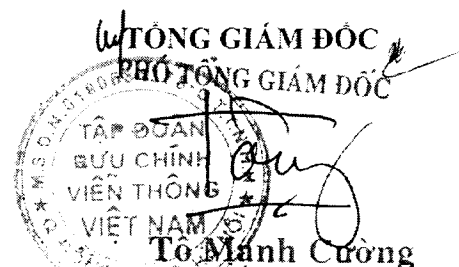 TỔNG GIÁM ĐỐC
PHÓ TỔNG GIÁM ĐỐC
TẬP ĐOÀN
BƯU CHÍNH
VIỄN THÔNG
VIỆT NAM
Tô Mạnh Cường